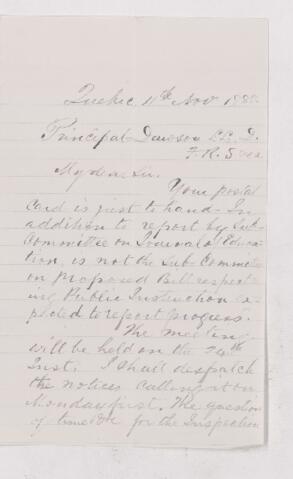 Quebec 11th Nov 188
Principal Dawson LL. D.
F. R. S &c
My dear Sir.
Your postal
Card is just to hand - In
addition to report by Sub-
Committee on Journal of Educa-
tion, is not the Sub-Committee
on proposed Bill respect-
ing Public Instruction ex-
pected to report progress.
The meeting
will be held on the 24th
Inst. I shall despatch
the notices calling it on
Monday first. The question
of time &c for the Inspection